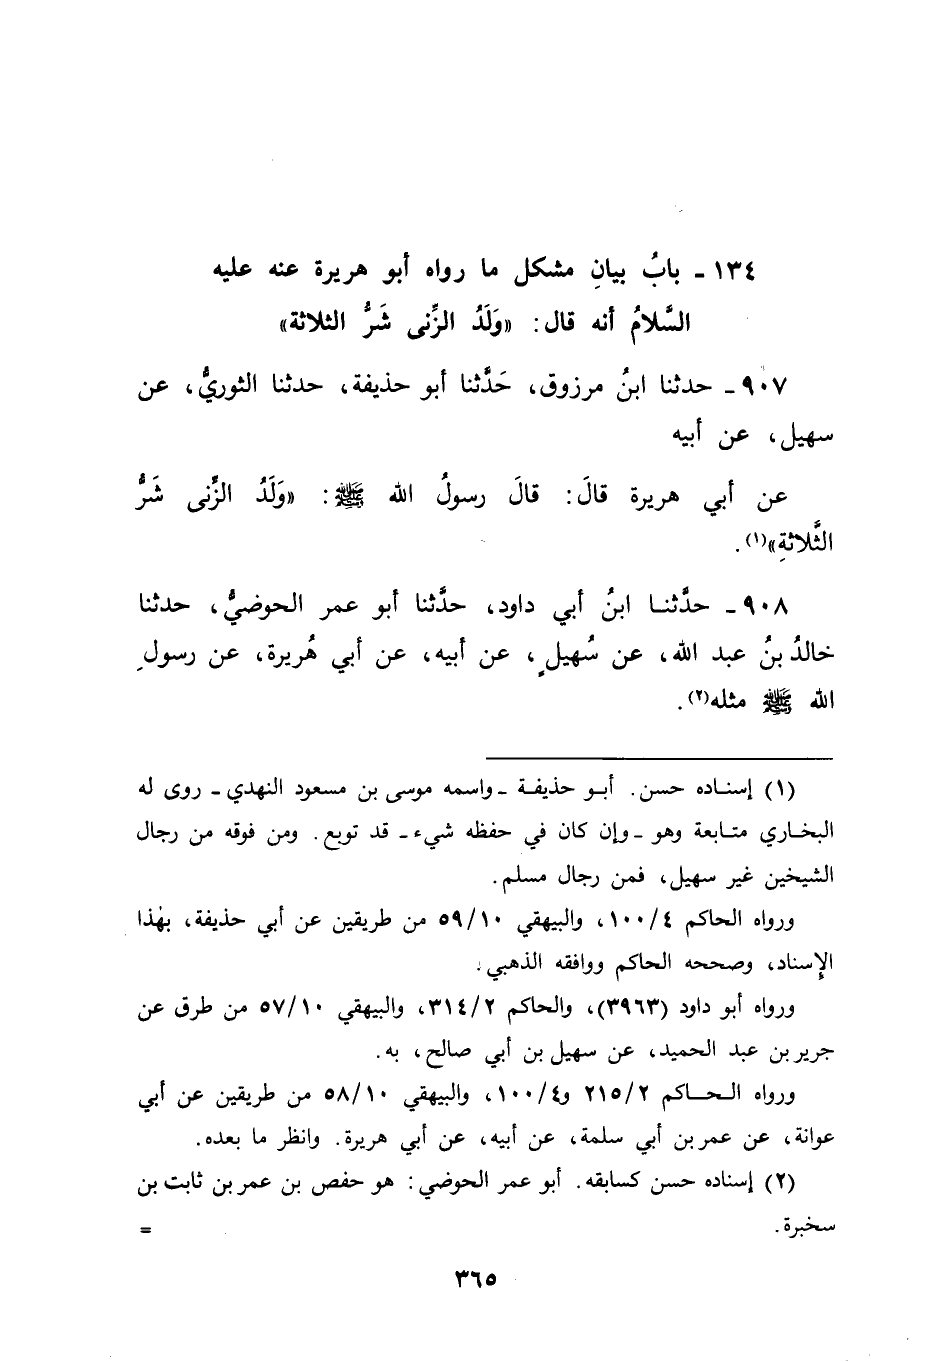 ١٣٤ ـ بابُ بيانِ مشكل ما رواه أبو هريرة عنه عليه
السَّلامُ أنه قال: «وَلَدُ الزِّنى شَرُّ الثلاثة»
٩٠٧ ـ حدثنا ابنُ مرزوق، حَدَّثنا أبو حذيفة، حدثنا الثوريُّ، عن
سهيل، عن أبيه
عن أبي هريرة قالَ: قالَ رسولُ الله ﷺ: «وَلَدُ الزِّنى شَرُّ
الثَّلاثةِ»(١).
٩٠٨ ـ حدَّثنا ابنُ أبي داود، حدَّثنا أبو عمر الحوضيُّ، حدثنا
خالدُ بنُ عبد الله، عن سُهيلٍ، عن أبيه، عن أبي هُريرة، عن رسولِ
الله ﷺ مثله(٢).
(١) إسناده حسن. أبو حذيفة ـ واسمه موسى بن مسعود النهدي ـ روى له
البخاري متابعة وهو ـ وإن كان في حفظه شيء ـ قد توبع. ومن فوقه من رجال
الشيخين غير سهيل، فمن رجال مسلم.
ورواه الحاكم ١٠٠/٤، والبيهقي ٥٩/١٠ من طريقين عن أبي حذيفة، بهٰذا
الإسناد، وصححه الحاكم ووافقه الذهبي.
ورواه أبو داود (٣٩٦٣)، والحاكم ٣١٤/٢، والبيهقي ٥٧/١٠ من طرق عن
جرير بن عبد الحميد، عن سهيل بن أبي صالح، به.
ورواه الحاكم ٢١٥/٢ و١٠٠/٤، والبيهقي ٥٨/١٠ من طريقين عن أبي
عوانة، عن عمر بن أبي سلمة، عن أبيه، عن أبي هريرة. وانظر ما بعده.
(٢) إسناده حسن كسابقه. أبو عمر الحوضي: هو حفص بن عمر بن ثابت بن
سخبرة. =
٣٦٥